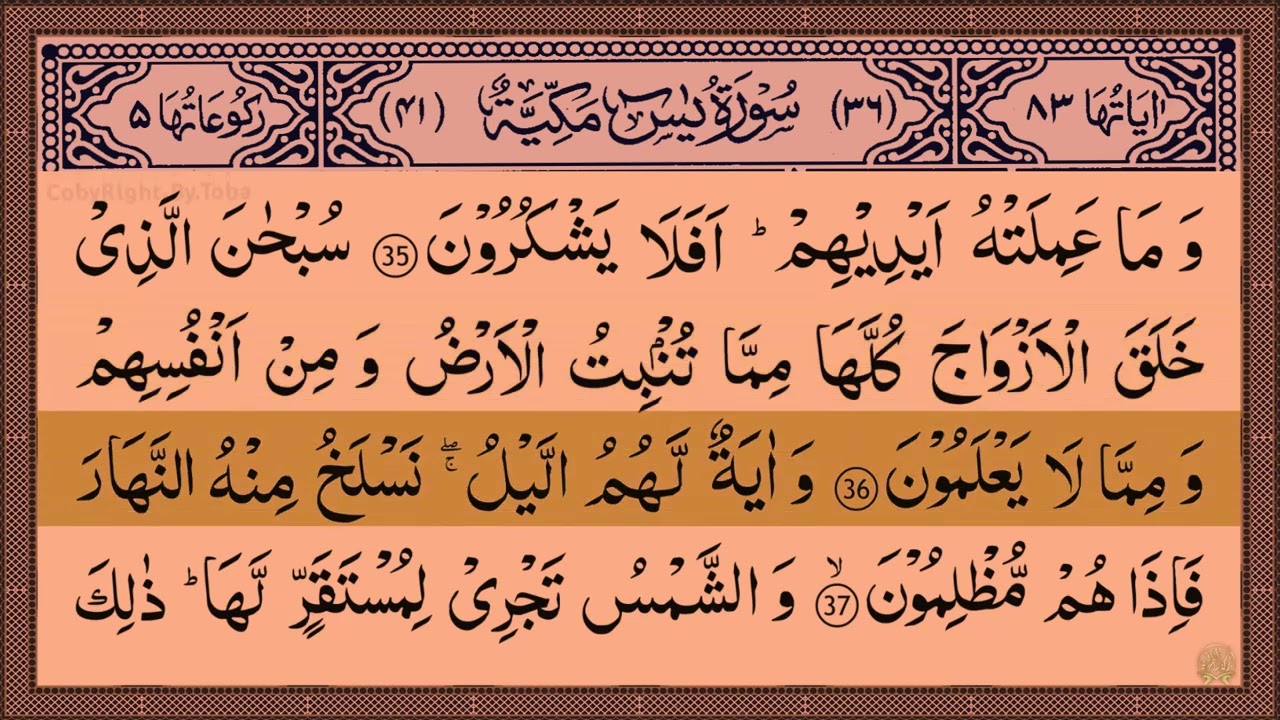 اٰيَاتُهَا ٨٣ (٣٦) سُوْرَةُ يٰسٓ مَكِّيَّةٌ (٤١) رُكُوْعَاتُهَا ٥
CobyRight By.Toba
وَ مَا عَمِلَتْهُ اَيْدِيْهِمْ ؕ اَفَلَا يَشْكُرُوْنَ 35 سُبْحٰنَ الَّذِیْ
خَلَقَ الْاَزْوَاجَ كُلَّهَا مِمَّا تُنْۢبِتُ الْاَرْضُ وَ مِنْ اَنْفُسِهِمْ
وَ مِمَّا لَا يَعْلَمُوْنَ 36 وَ اٰيَةٌ لَّهُمُ الَّيْلُ ۖۚ نَسْلَخُ مِنْهُ النَّهَارَ
فَاِذَا هُمْ مُّظْلِمُوْنَ ۙ 37 وَ الشَّمْسُ تَجْرِیْ لِمُسْتَقَرٍّ لَّهَا ؕ ذٰلِكَ